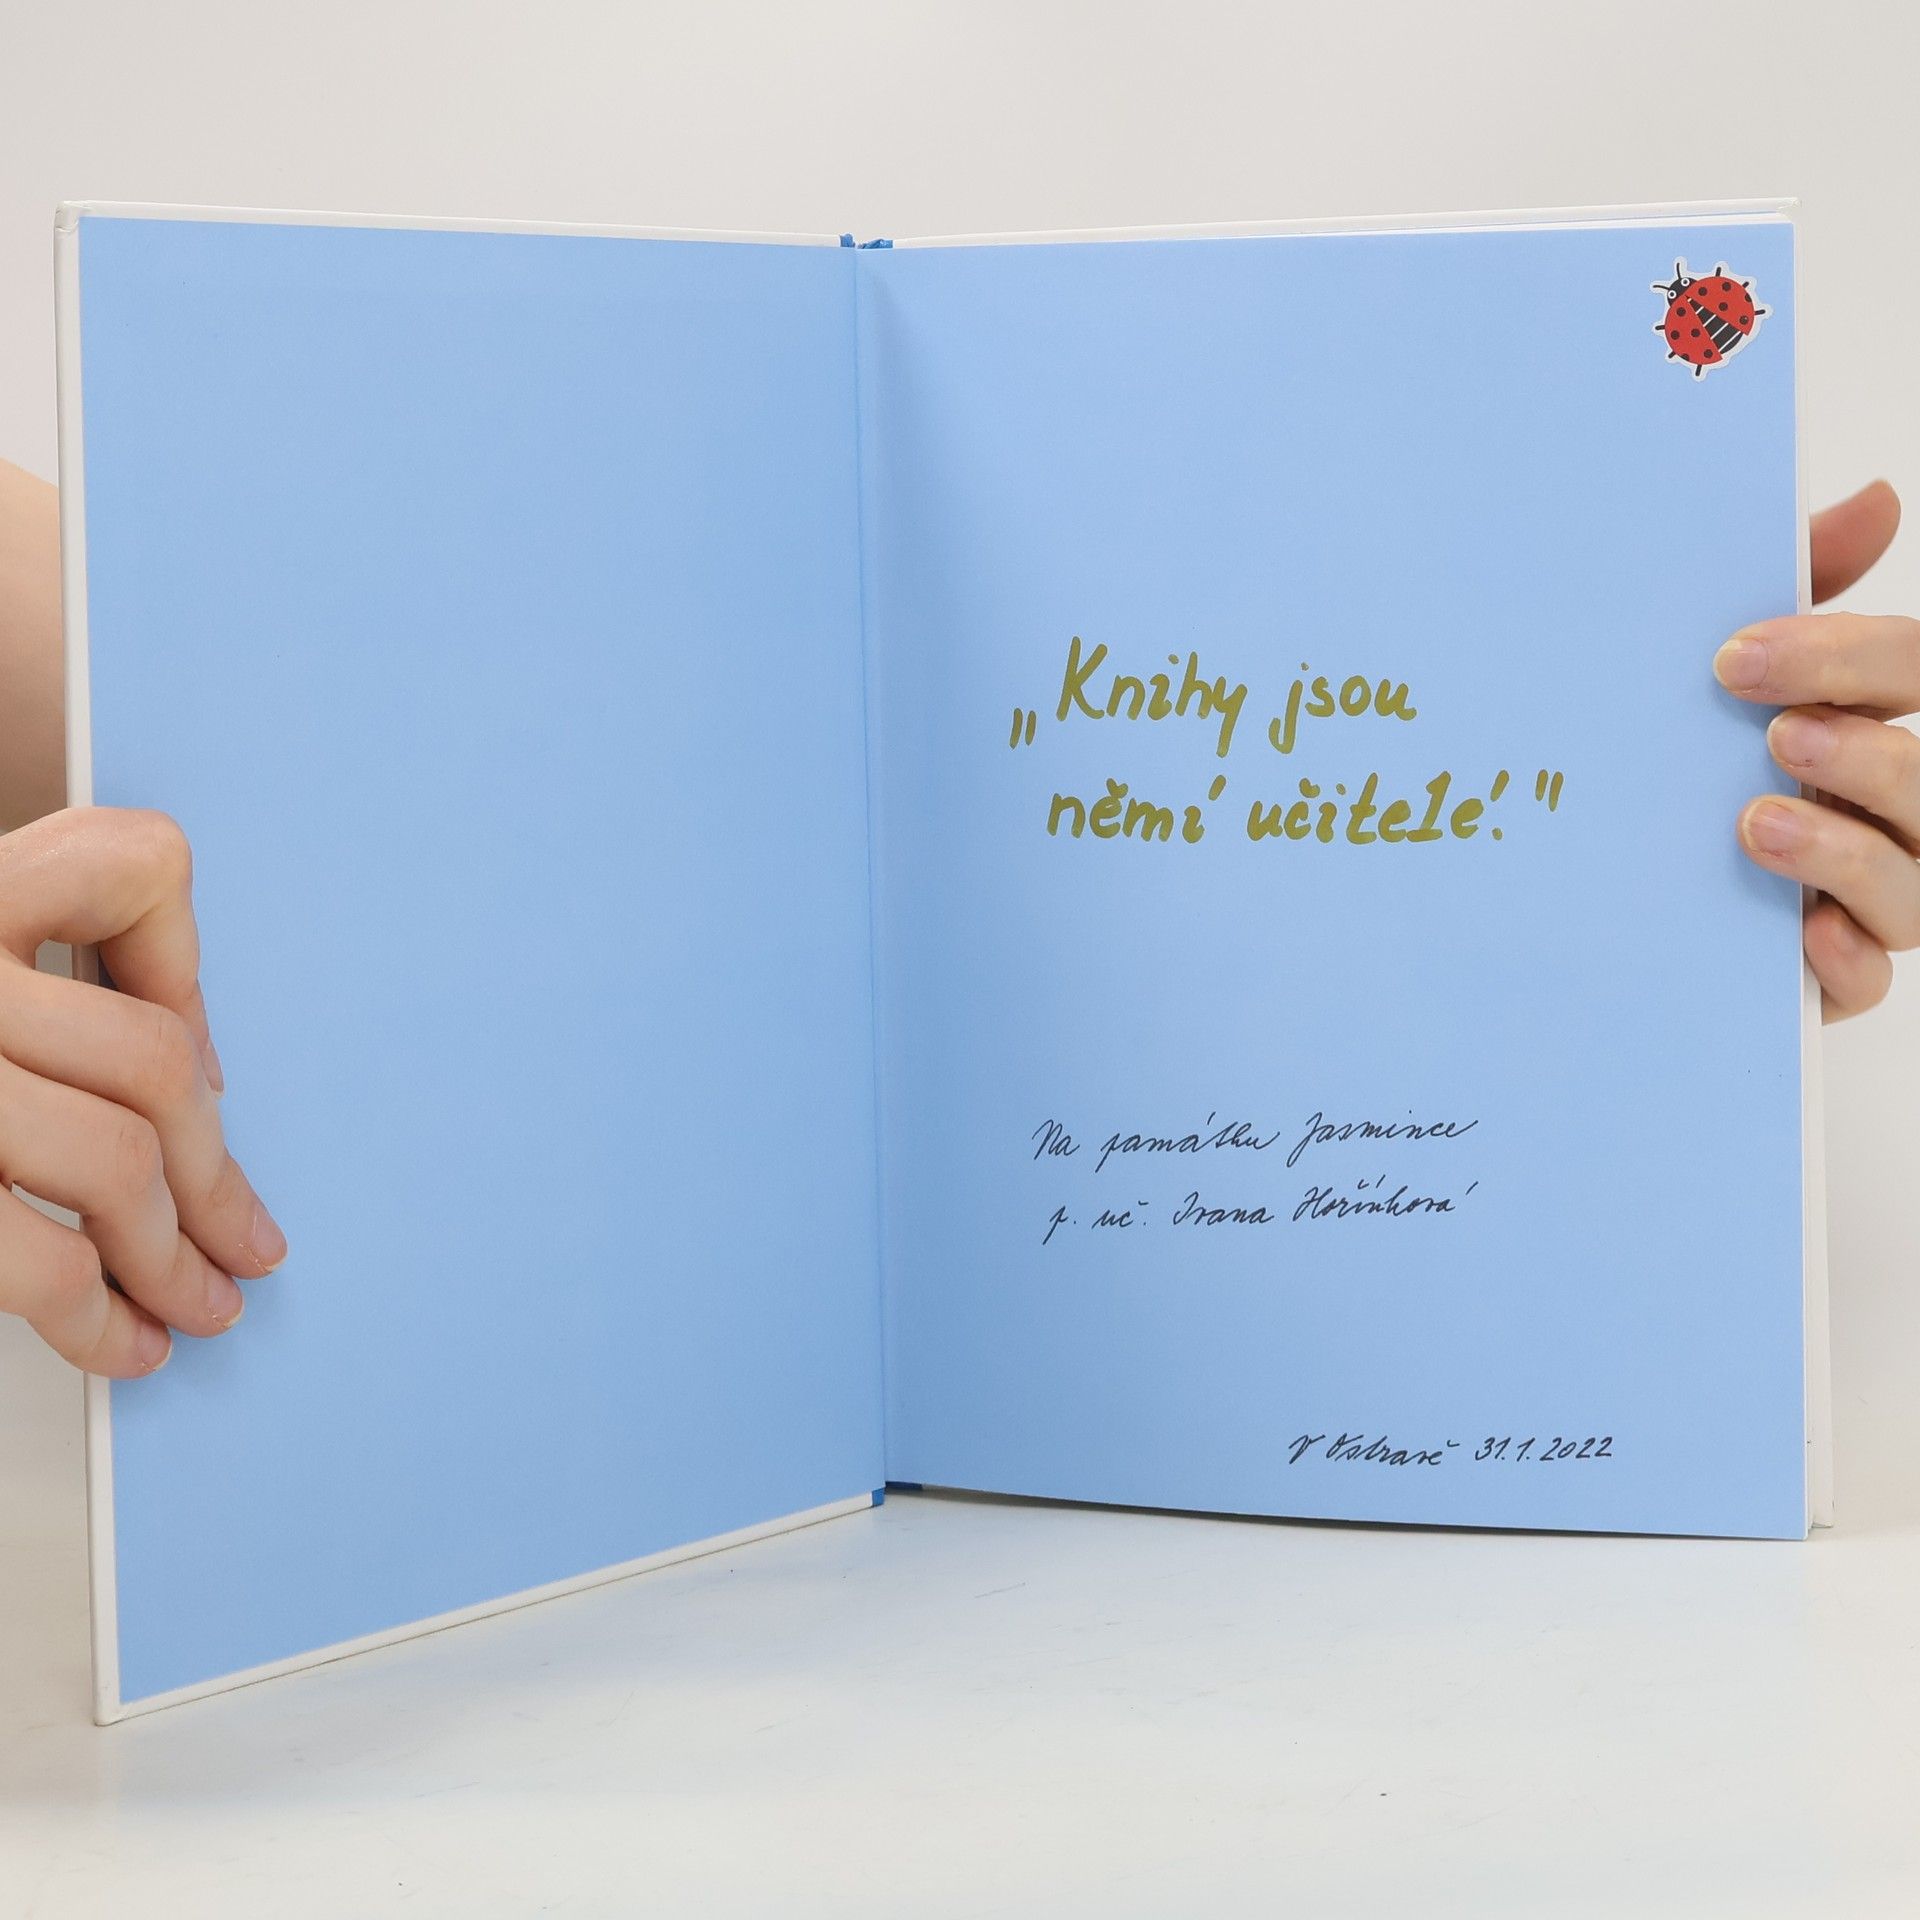 „Knihy jsou
němí učitelé!"
Na památku Jasmince
p. uč. Ivana Hoříňková
V Ostravě 31.1.2022